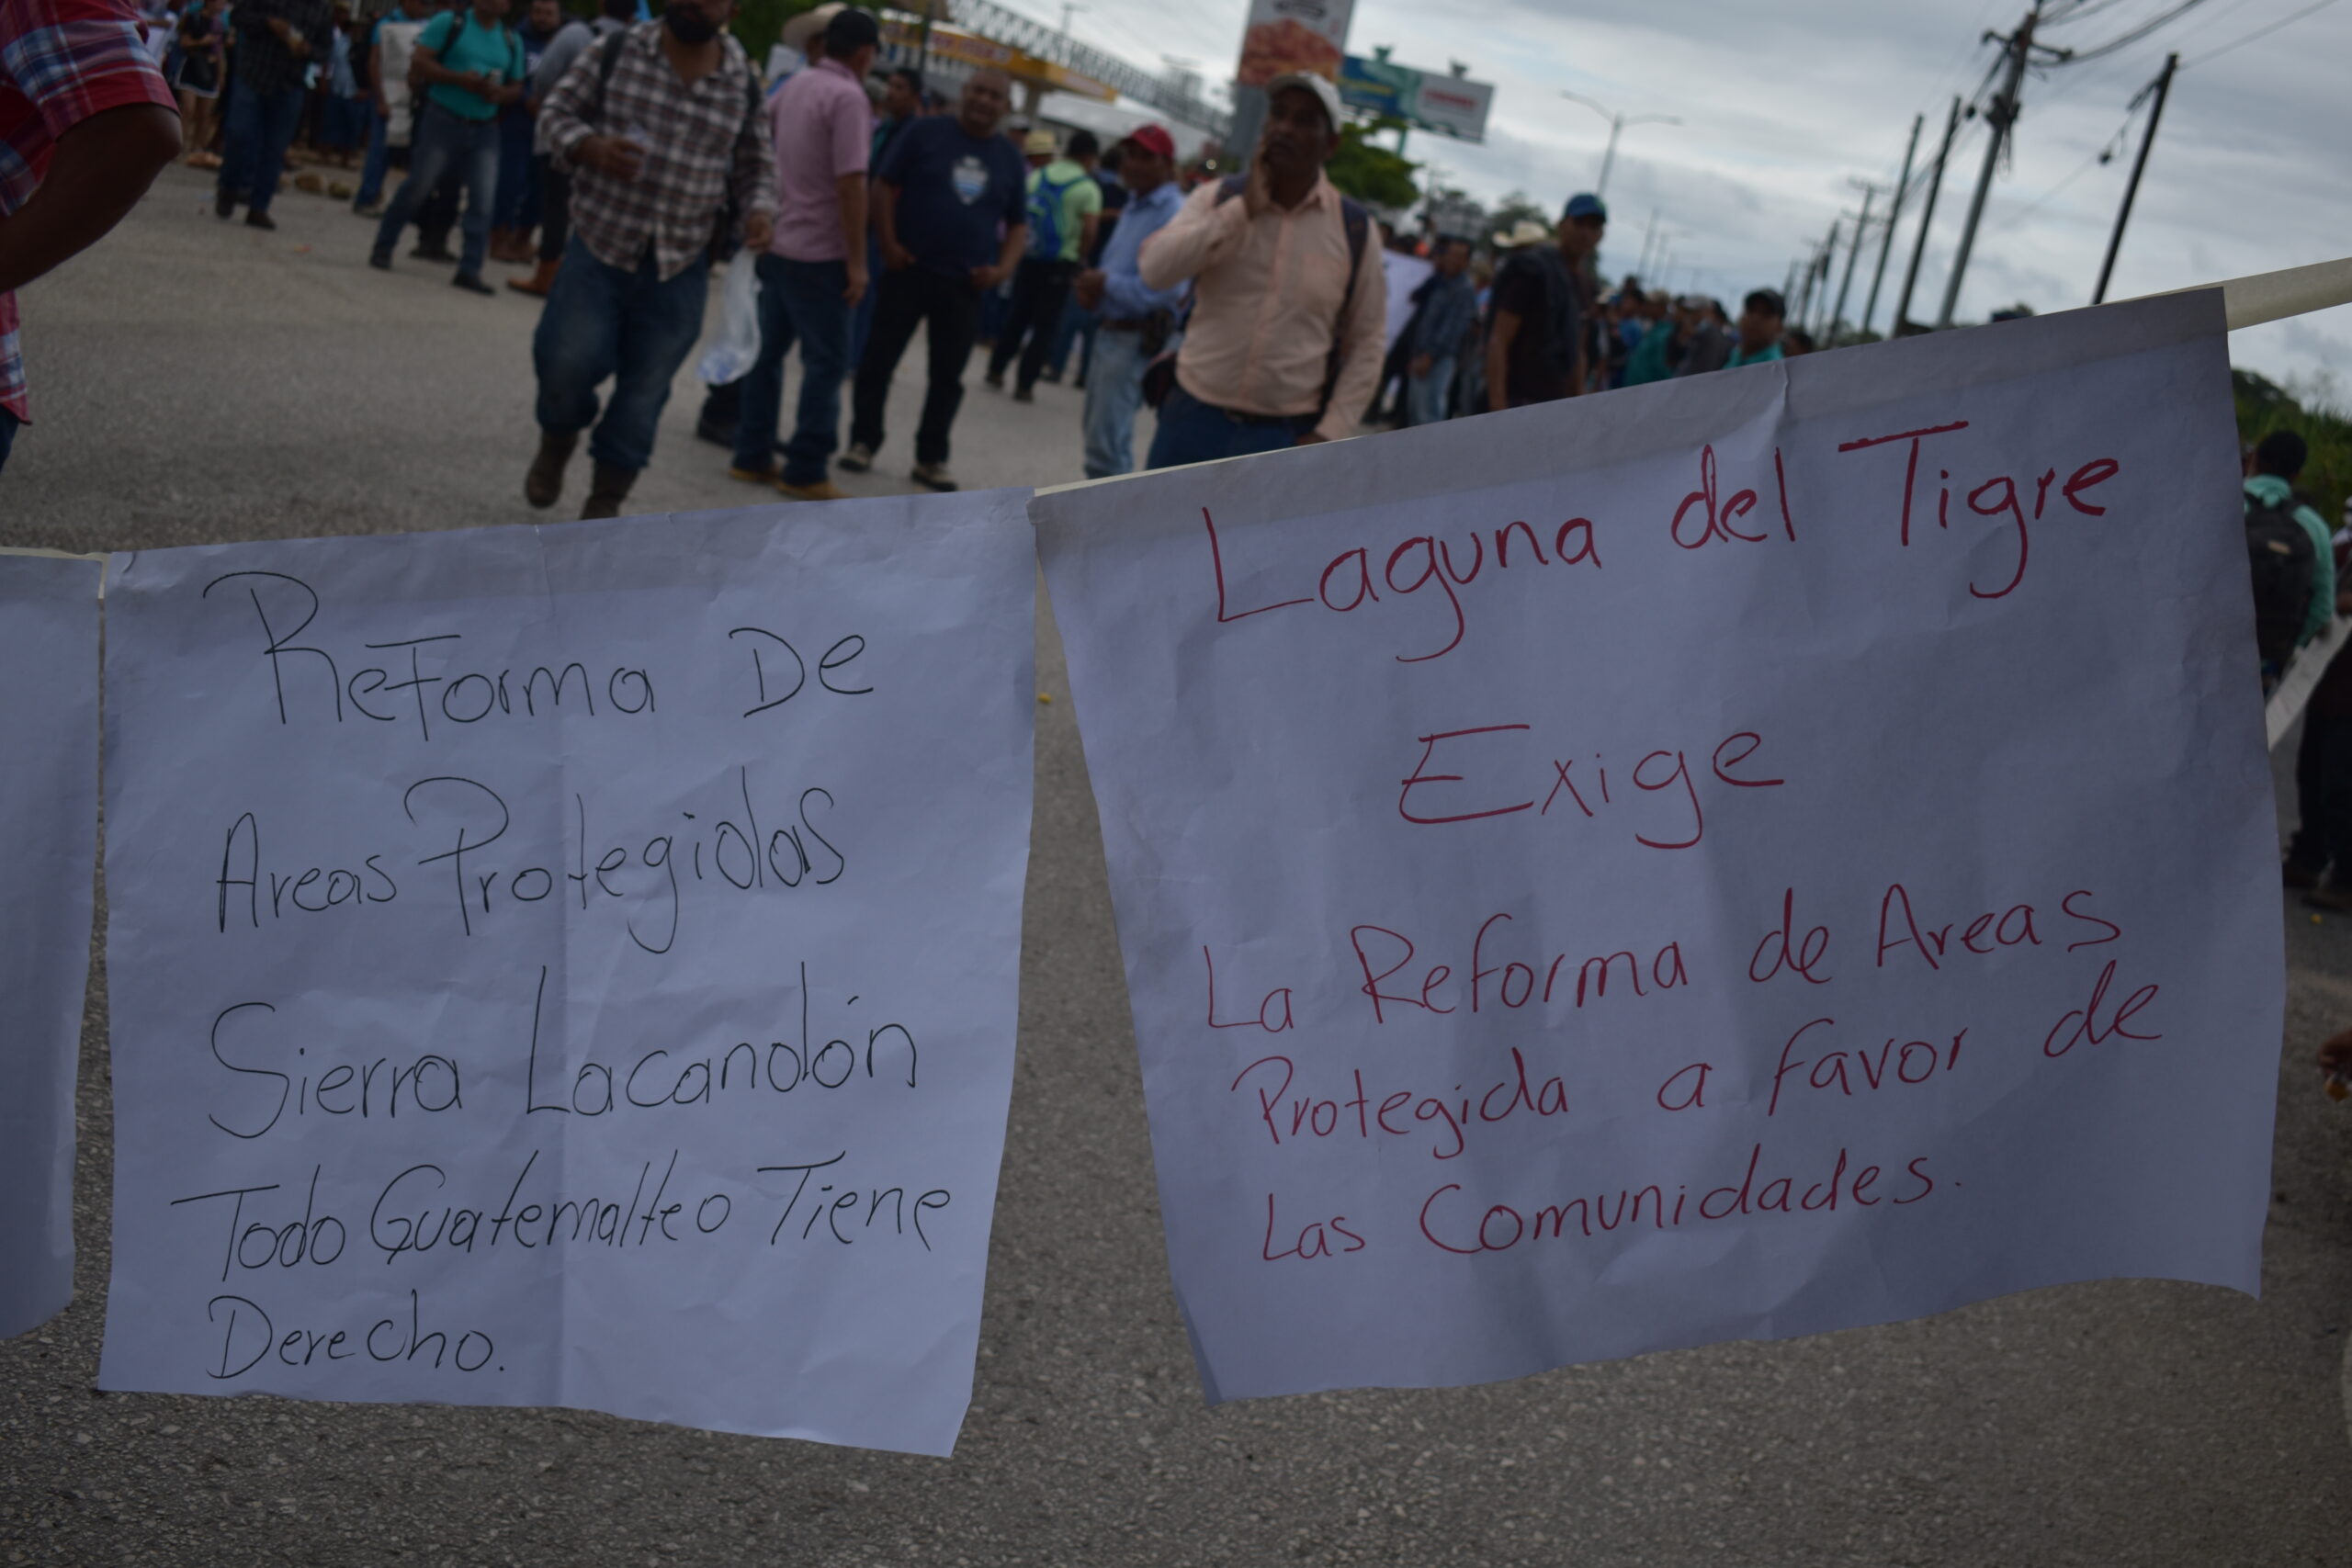 Reforma De
Areas Protegidas
Sierra Lacandón
Todo Guatemalteo Tiene
Derecho.
Laguna del Tigre
Exige
La Reforma de Areas
Protegida a favor de
Las Comunidades.